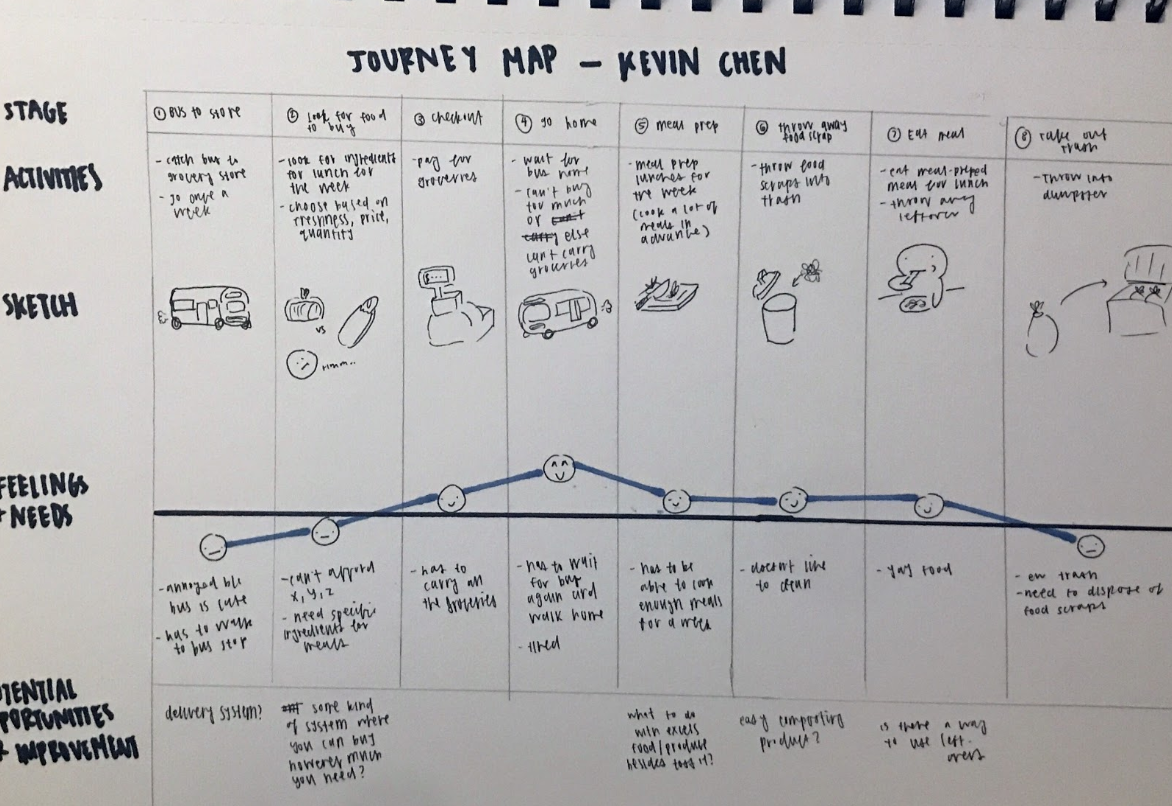 JOURNEY MAP – KEVIN CHEN
STAGE
① BUS TO STORE
② look for food
to buy
③ checkout
④ go home
⑤ meal prep
⑥ throw away
food scrap
⑦ Eat meal
⑧ take out
trash
ACTIVITIES
- catch bus to
grocery store
- go once a
week
- look for ingredients
for lunch for
the week
- choose based on
freshness, price,
quantity
- pay for
groceries
- wait for
bus home
- can't buy
too much
or can't
carry else
can't carry
groceries
- meal prep
lunches for
the week
(cook a lot of
meals in
advance)
- throw food
scraps into
trash
- eat meal-prepped
meal for lunch
- throw away
leftover
- Throw into
dumpster
SKETCH
vs
Hmm..
FEELINGS
+ NEEDS
- annoyed b/c
bus is late
- has to walk
to bus stop
- can't afford
x, y, z
- need specific
ingredients for
meals
- has to
carry all
the groceries
- has to wait
for bus
again and
walk home
- tired
- has to be
able to cook
enough meals
for a week
- doesn't like
to clean
- yay food
- ew trash
- need to dispose of
food scraps
OTENTIAL
PPORTUNITIES
+ IMPROVEMENT
delivery system?
some kind
of system where
you can buy
however much
you need?
what to do
with excess
food/produce
besides toss it?
easy composting
product?
is there a way
to use left-
overs